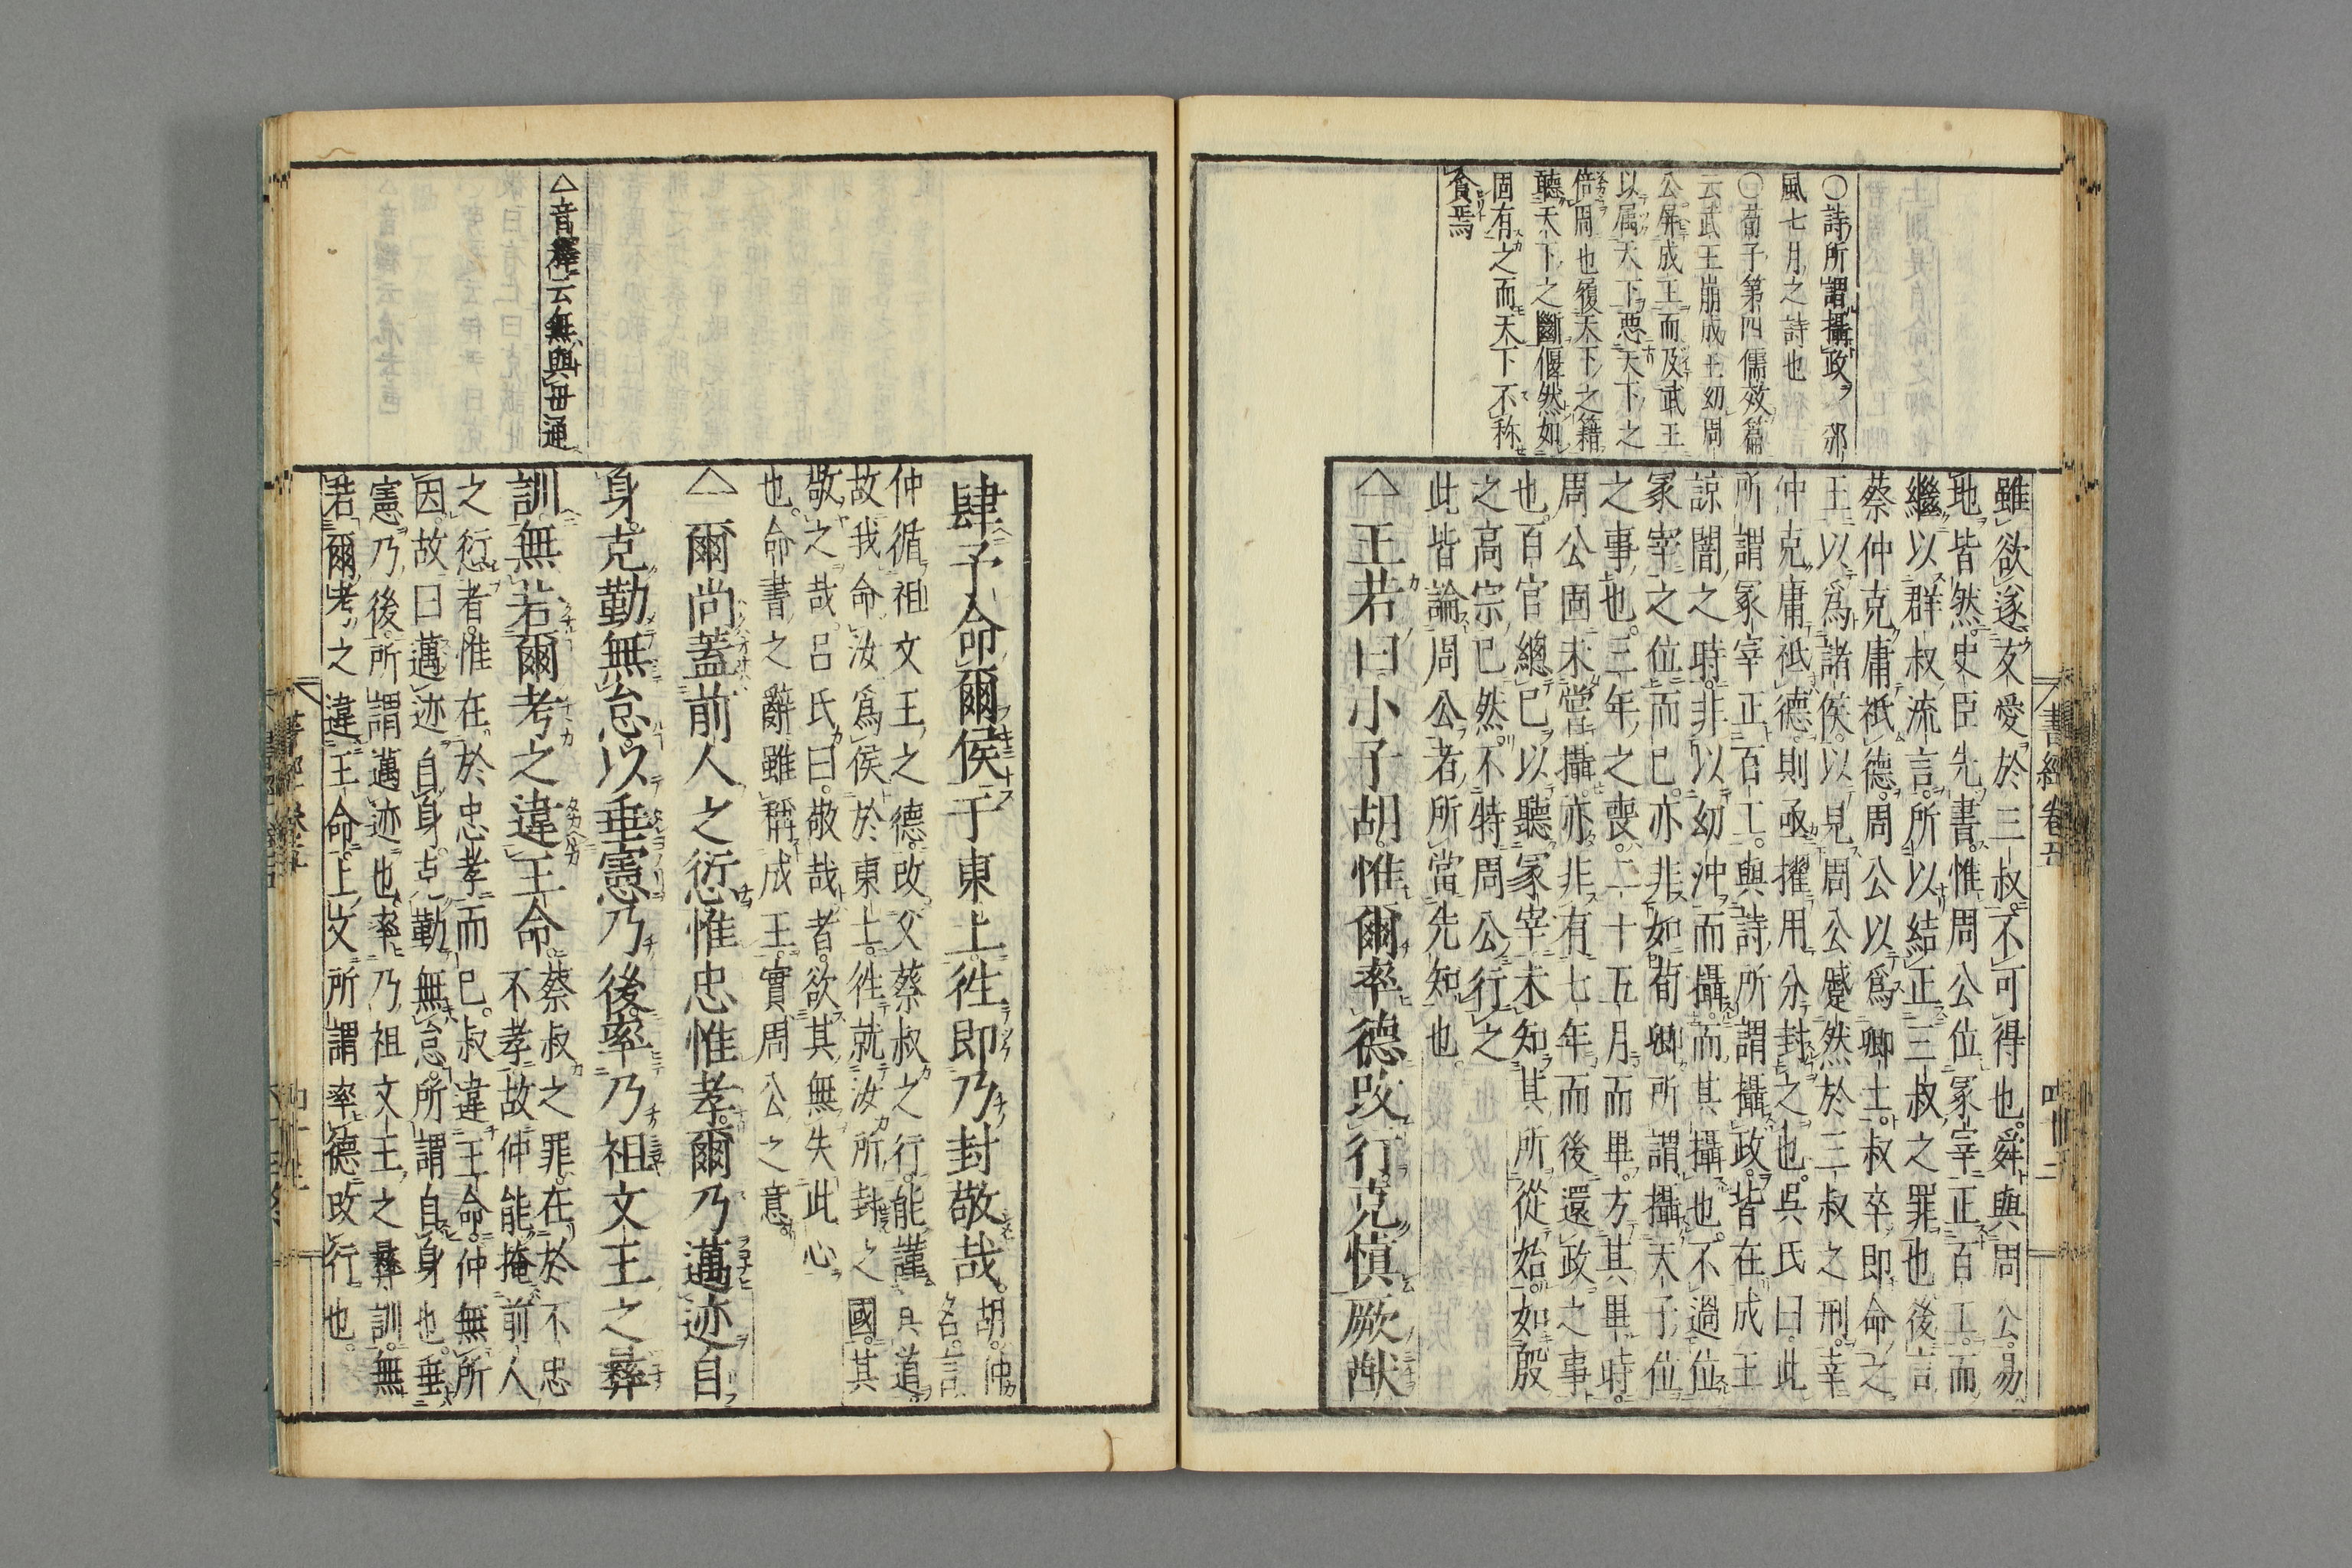 ○詩所謂攝政 邠
風七月之詩也
○荀子第四儒效篇
云武王崩成王幼周
公屏成王而及武王
以属天下惡天下之
倍周也履天下之籍
聽天下之斷偃然如
固有之而天下不称
貪焉
雖欲遂友愛於三叔不可得也舜與周公易
地皆然史臣先書惟周公位冡宰正百工而
繼以群叔流言所以結正三叔之罪也後言
蔡仲克庸祗德周公以爲卿士叔卒即命之
王以爲諸侯以見周公蹙然於三叔之刑幸
仲克庸祗德則亟擢用分封之也吳氏曰此
所謂冡宰正百工與詩所謂攝政皆在成王
諒闇之時非以幼沖而攝而其攝也不過位
冡宰之位而已亦非如荀卿所謂攝天子位
之事也三年之喪二十五月而畢方其畢時
周公固未嘗攝亦非有七年而後還政之事
也百官總已以聽冡宰未知其所從始如殷
之高宗已然不特周公行之
此皆論周公者所當先知也
△王若曰小子胡惟爾率德改行克慎厥猷
書經卷五
肆予命爾侯于東土徃即乃封敬哉 胡仲名言
仲循祖文王之德改父蔡叔之行能謹其道
故我命汝爲侯於東土徃就汝所封之國其
敬之哉呂氏曰敬哉者欲其無失此心
也命書之辭雖稱成王實周公之意
△爾尚蓋前人之愆惟忠惟孝爾乃邁迹自
身克勤無怠以垂憲乃後率乃祖文王之彝
訓無若爾考之違王命 蔡叔之罪在於不忠不孝故仲能掩前人
之愆者惟在於忠孝而已叔違王命仲無所
因故曰邁迹自身克勤無怠所謂自身也垂
憲乃後所謂邁迹也率乃祖文王之彝訓無
若爾考之違王命上文所謂率德改行也
△音釋云無與毋通